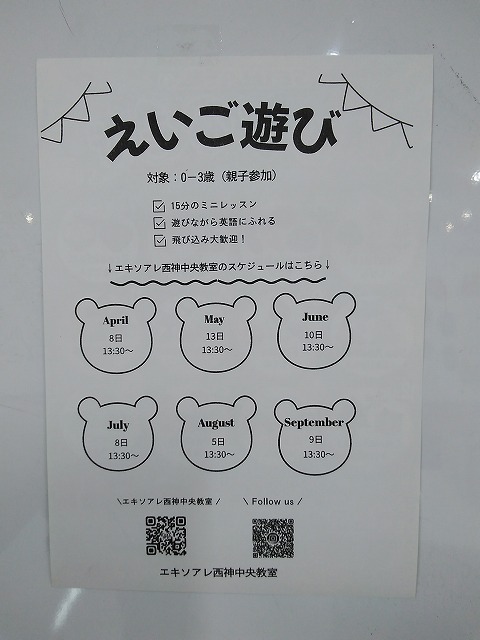 えいご遊び
対象：0－3歳（親子参加）
15分のミニレッスン
遊びながら英語にふれる
飛び込み大歓迎！
↓エキソアレ西神中央教室のスケジュールはこちら↓
April
8日
13:30～
May
13日
13:30～
June
10日
13:30～
July
8日
13:30～
August
5日
13:30～
September
9日
13:30～
\エキソアレ西神中央教室 /
\ Follow us /
エキソアレ西神中央教室